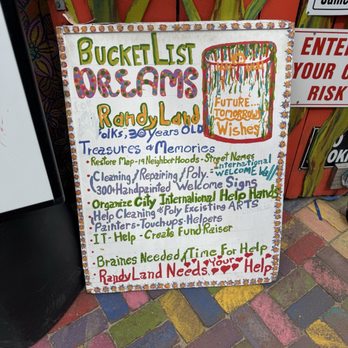 BUCKET LIST
DREAMS
RandyLand
Folks, 30 years OLD
Treasures & Memories
- Restore Map - 14 NeighborHoods - Street Names
Cleaning/Repairing/Poly.
International
WELCOME Wall
300+ Handpainted Welcome Signs
Organize City International Help Hands
Help Cleaning & Poly Excisting ARTS
- Painters - Touchups - Helpers
- IT - Help - Create Fund Raiser
- Braines Needed / Time For Help
RandyLand Needs Your Help
FUTURE...
TOMORROWS
Wishes
ENTER
YOUR O
RISK